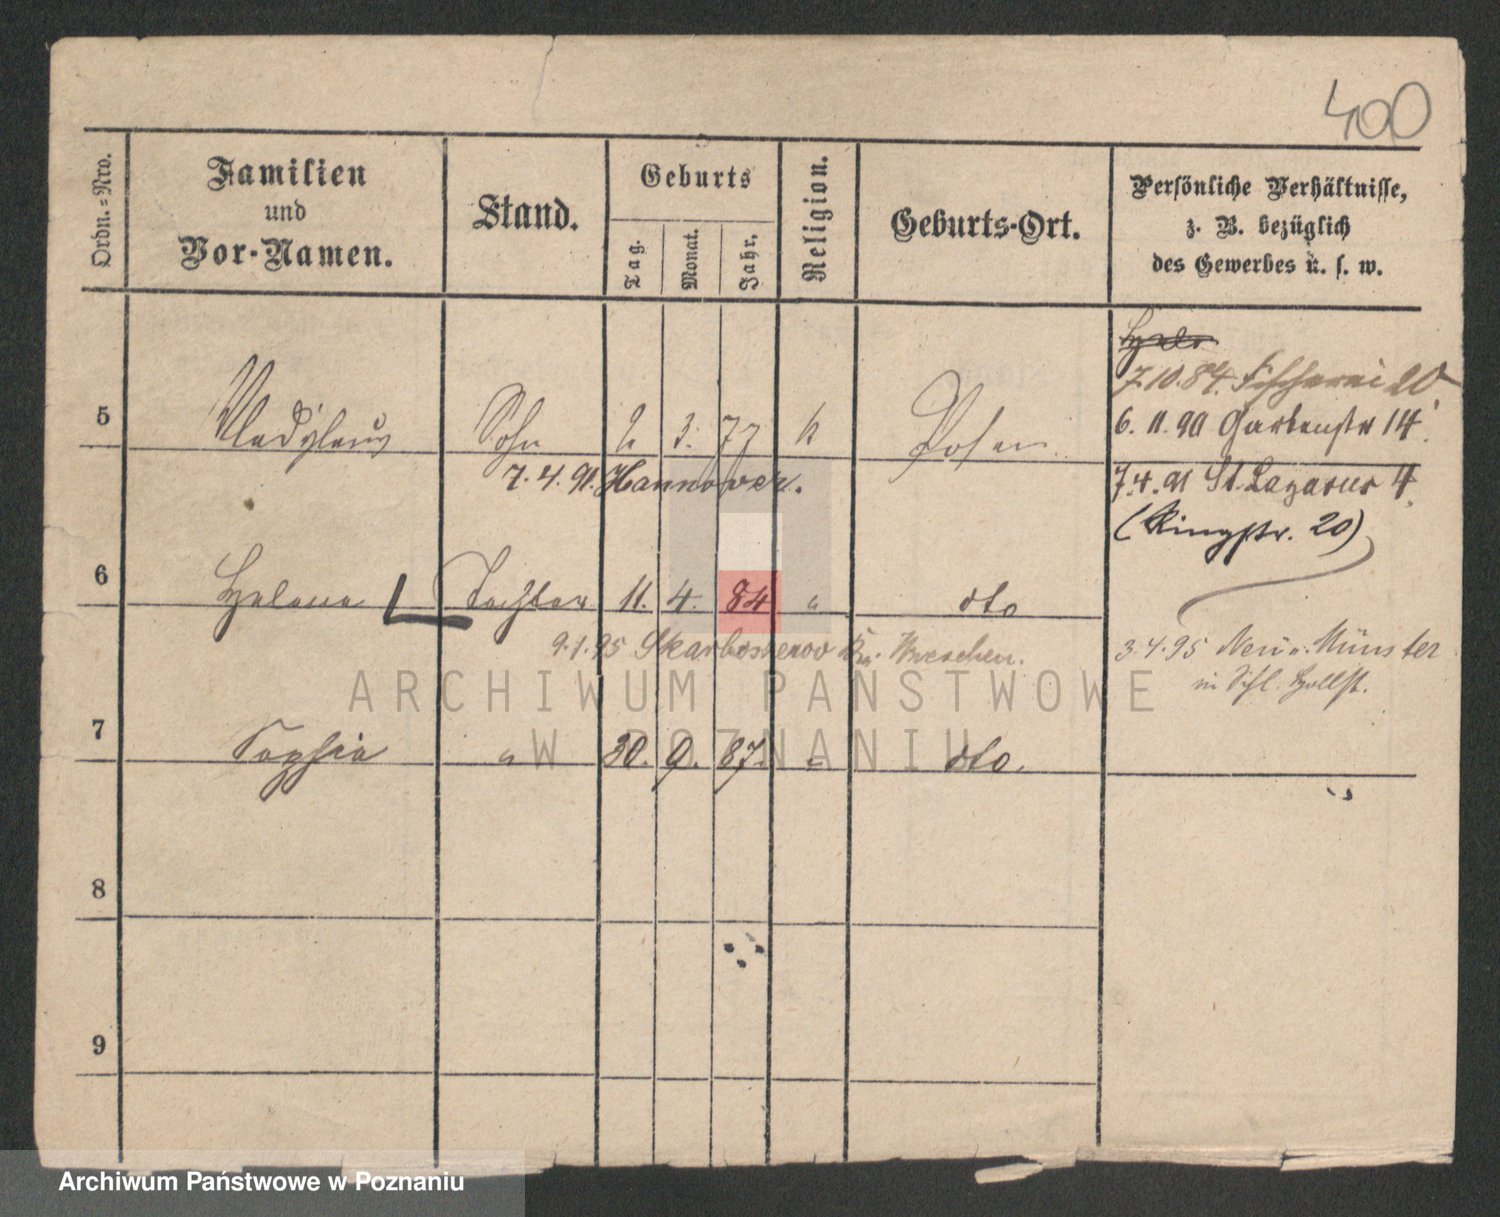 400
Ordn.=Nro.
Familien
und
Vor-Namen.
Stand.
Geburts
Tag.
Monat.
Jahr.
Religion.
Geburts-Ort.
Persönliche Verhältnisse,
z. B. bezüglich
des Gewerbes u. s. w.
7.10.84. Fischerei 20
6. 11. 90 Gartenstr 14.
5 Wladyslaus Sohn 2 3. 77 k Posen
7. 4. 91. Hannover.
7.4.91 St. Lazarus 4.
(Ringstr. 20)
6 Helene Tochter 11. 4. 84 " dto
9.1.95 Kr. Wreschen.
3.4.95 Neu Münster
in Schl. Hollst.
7 Sophia " 30. 9. 87. " dto.
8
9
ARCHIWUM PAŃSTWOWE
W POZNANIU
Archiwum Państwowe w Poznaniu